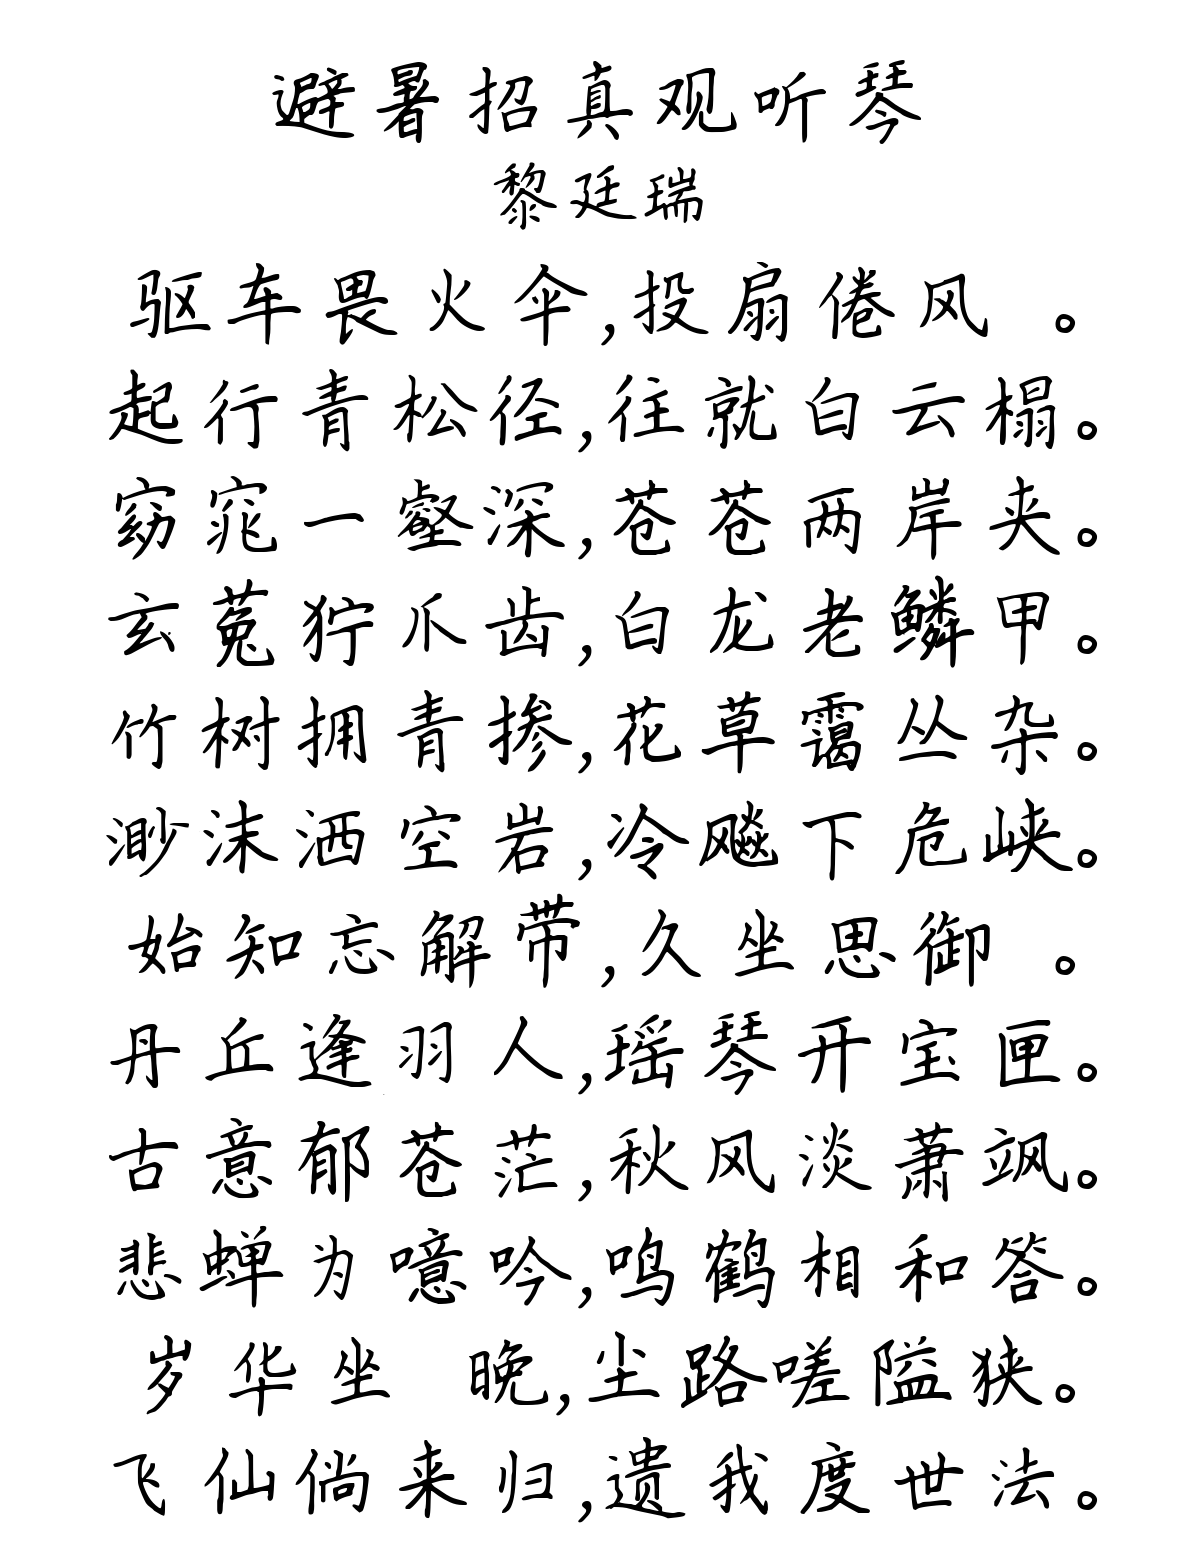 避暑招真观听琴
黎廷瑞
驱车畏火伞,投扇倦风 。
起行青松径,往就白云榻。
窈窕一壑深,苍苍两岸夹。
玄菟狞爪齿,白龙老鳞甲。
竹树拥青掺,花草霭丛杂。
渺沫洒空岩,冷飚下危峡。
始知忘解带,久坐思御 。
丹丘逢羽人,瑶琴开宝匣。
古意郁苍茫,秋风淡萧飒。
悲蝉为噫吟,鸣鹤相和答。
岁华坐 晚,尘路嗟隘狭。
飞仙倘来归,遗我度世法。